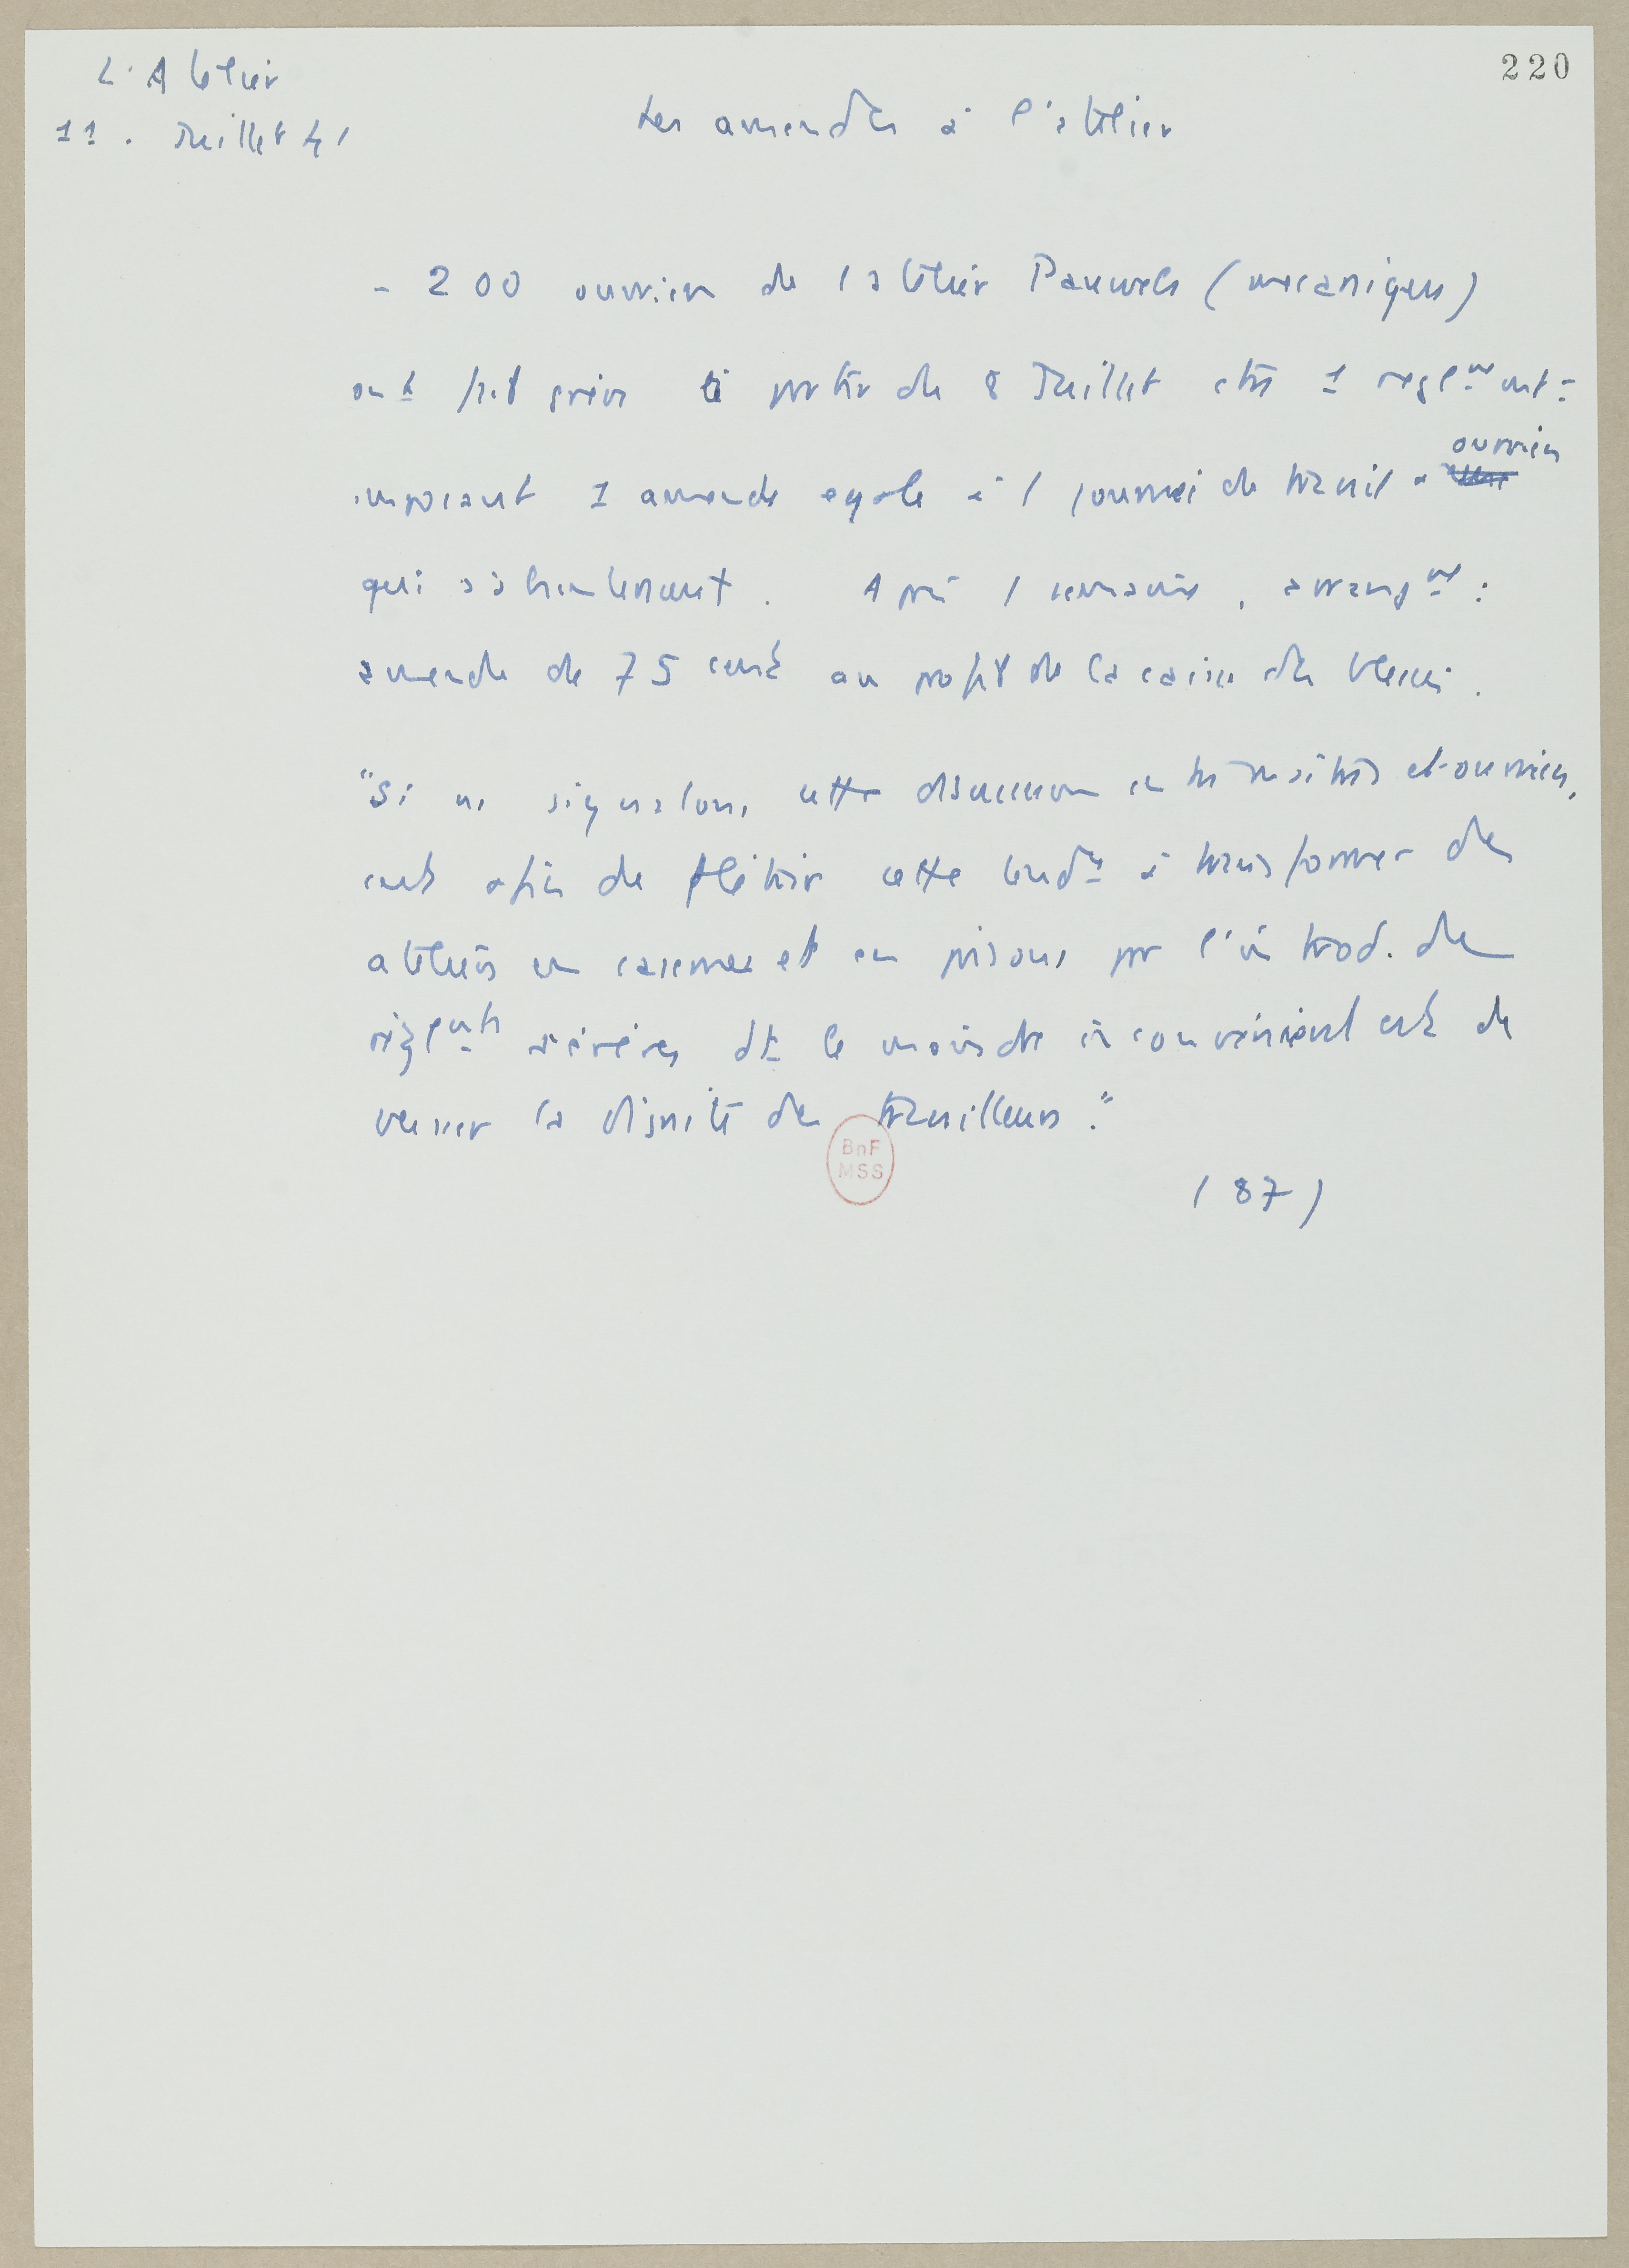 220
L'Atelier
11. Juillet 41
Les amendes à l'atelier
- 200 ouvriers de l'atelier Pauwels (mécaniques)
ont fait grève à partir du 8 Juillet ctre 1 reglmt
imposant 1 amende egale à 1 journée de travail à ouvriers
qui s'absentent. Après 1 semaine, arrangmt :
amende de 75 cent au profit de la caisse de
"Si ns signalons cette discussion entre maîtres et ouvriers,
c'est afin de flétrir cette tendce à transformer des
ateliers en casernes et en prisons pr l'introd. de
règlmts sévères dt le moindre inconvénient est de
blesser la dignité des travailleurs."
BnF
MSS
(87)